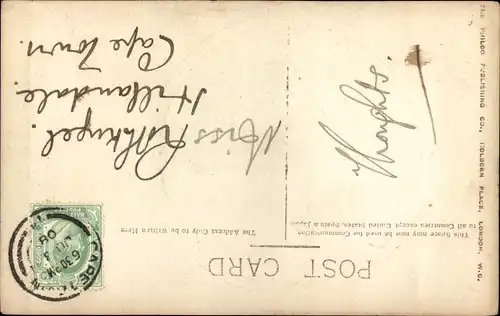 POST CARD
This Space now may be used for Communication
to all Countries except United States, Spain & Japan.
The Address Only to be Written Here
Thoughts.
Miss
Hillandale.
Cape Town.
THE PHILCO PUBLISHING CO., HOLBORN PLACE, LONDON, W.C.
HALFPENNY
CAPE TOWN
6 30 PM
08